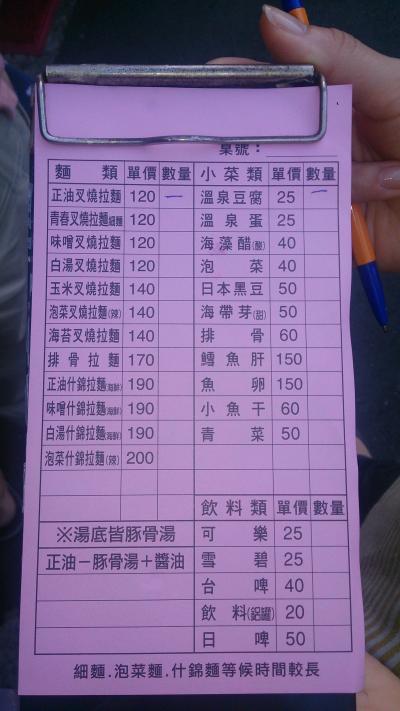 桌號：
麵類 單價 數量 小菜類 單價 數量
正油叉燒拉麵 120 一 溫泉豆腐 25 一
青春叉燒拉麵細麵 120 溫泉蛋 25
味噌叉燒拉麵 120 海藻醋(酸) 40
白湯叉燒拉麵 120 泡菜 40
玉米叉燒拉麵 140 日本黑豆 50
泡菜叉燒拉麵(辣) 140 海帶芽(甜) 50
海苔叉燒拉麵 140 排骨 60
排骨拉麵 170 鱈魚肝 150
正油什錦拉麵(海鮮) 190 魚卵 150
味噌什錦拉麵(海鮮) 190 小魚干 60
白湯什錦拉麵(海鮮) 190 青菜 50
泡菜什錦拉麵(辣) 200
飲料類 單價 數量
※湯底皆豚骨湯 可樂 25
正油－豚骨湯＋醬油 雪碧 25
台啤 40
飲料(鋁罐) 20
日啤 50
細麵.泡菜麵.什錦麵等候時間較長